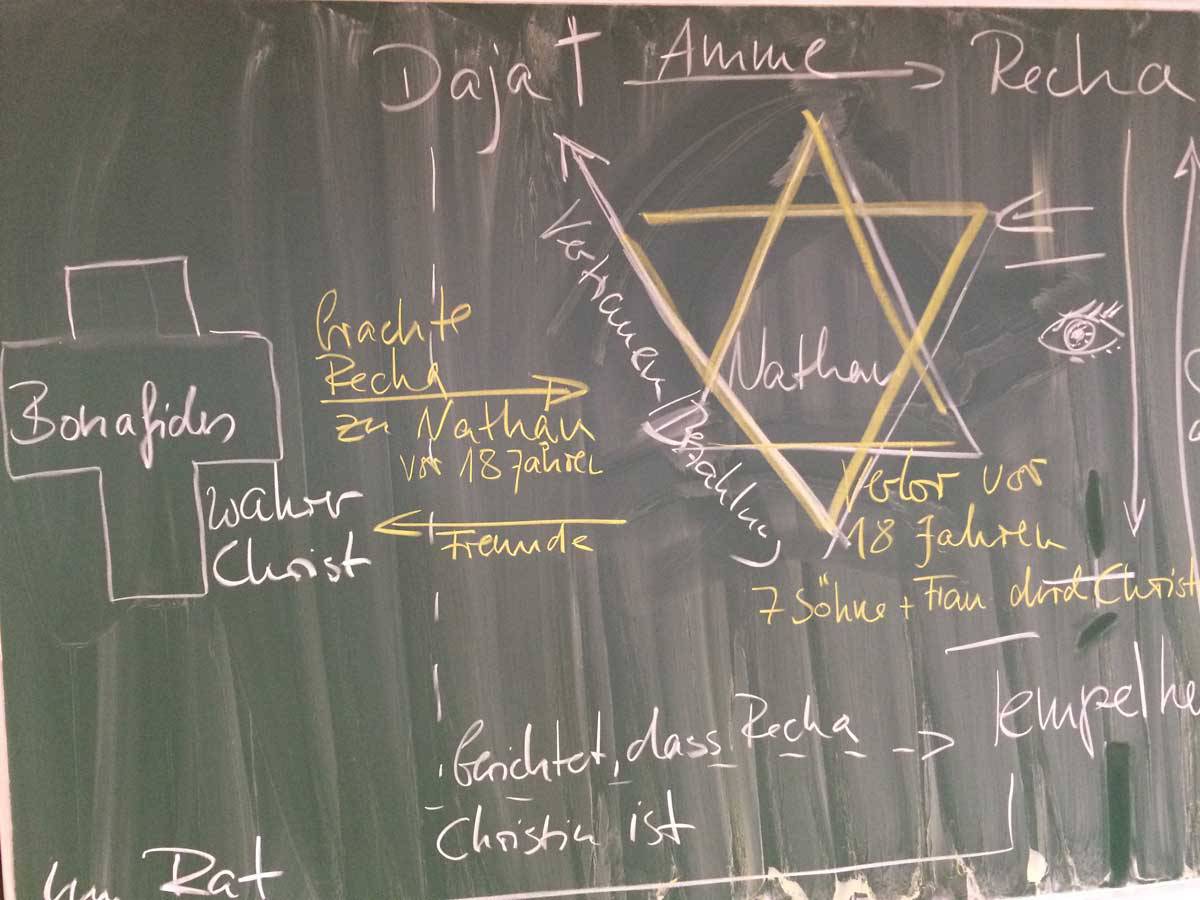 Daja Amme Recha
Vertrauen
Brachte
Recha
zu Nathan
vor 18 Jahren
Nathan
Bonafides
wahrer
Christ
Freunde
Bezahlung
Verlor vor
18 Jahren
7 Söhne + Frau durch Christ
Tempelhe
berichtet, dass Recha
Christin ist
um Rat